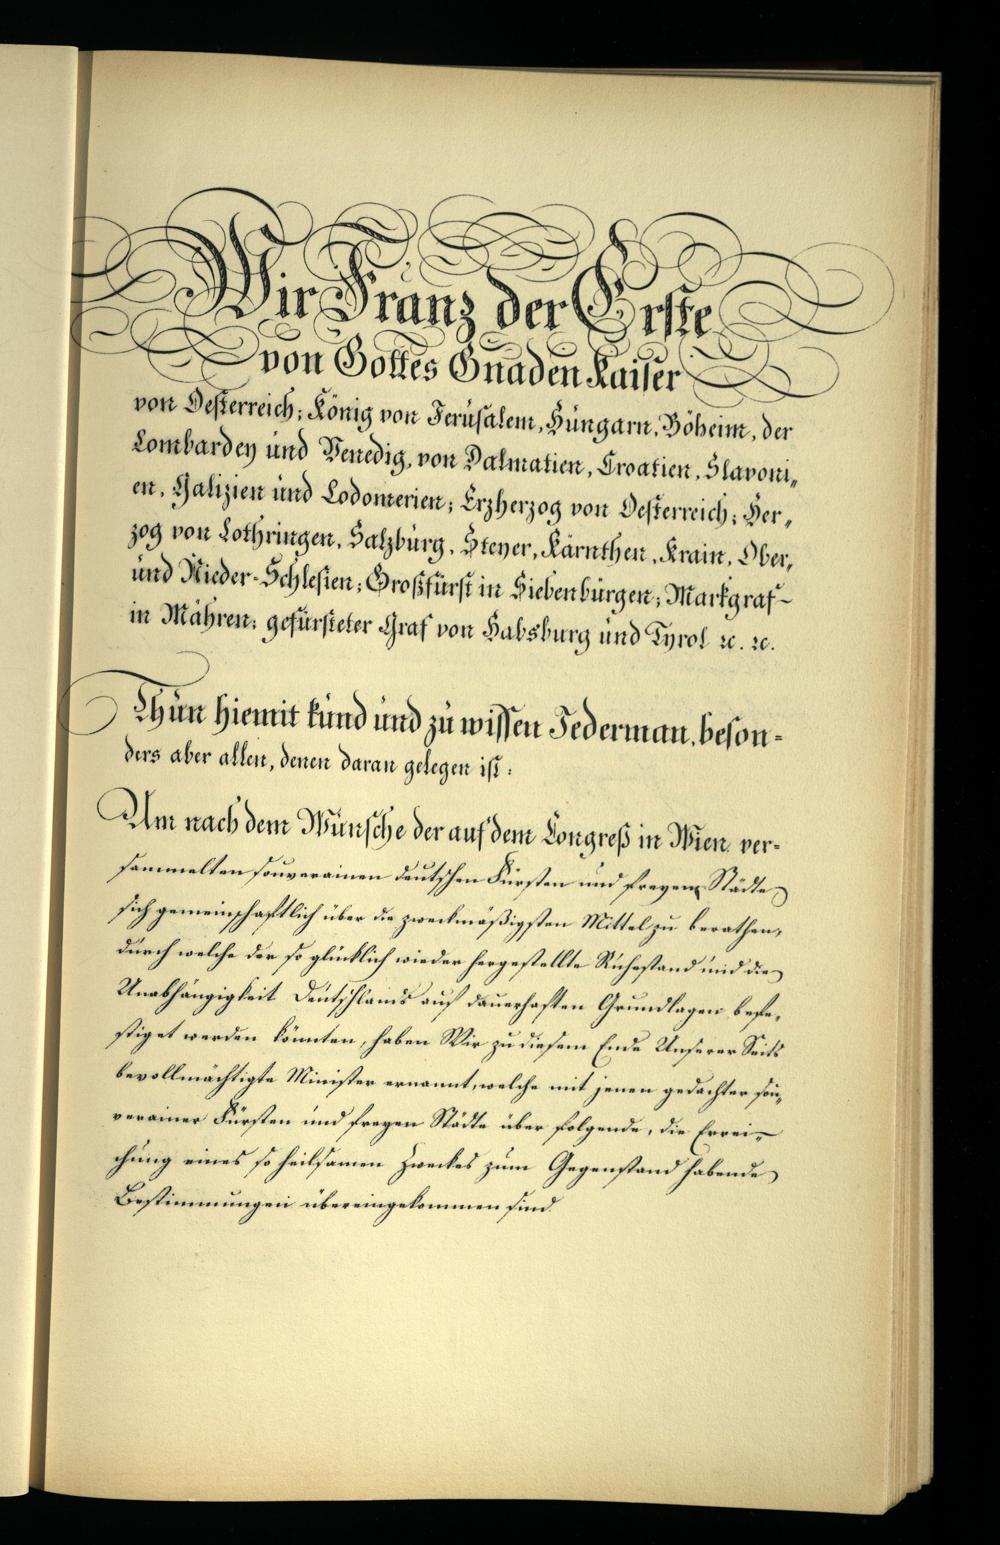 Wir Franz der Erste
von Gottes Gnaden Kaiser
von Oesterreich; König von Jerusalem, Hungarn, Böheim, der
Lombardey und Venedig, von Dalmatien, Croatien, Slavoni„
en, Galizien und Lodomerien; Erzherzog von Oesterreich; Her„
zog von Lothringen, Salzburg, Steyer, Kärnthen, Krain, Ober„
und Nieder-Schlesien; Großfürst in Siebenbürgen; Markgraf
in Mähren; gefürsteter Graf von Habsburg und Tyrol ꝛc. ꝛc.
Thun hiemit kund und zu wissen Jederman, beson=
ders aber allen, denen daran gelegen ist:
Um nach dem Wunsche der auf dem Congreß in Wien ver=
sammelten souverainen deutschen Fürsten und freyen Städte
sich gemeinschaftlich über die zweckmäßigsten Mittel zu berathen,
durch welche der so glücklich wieder hergestellte Ruhestand und die
Unabhängigkeit Deutschlands auf dauerhaften Grundlagen befe„
stiget werden könnten, haben Wir zu diesem Ende Unserer Seits
bevollmächtigte Minister ernannt, welche mit jenen gedachter sou„
verainer Fürsten und freyen Städte über folgende, die Errei=
chung eines so heilsamen Zweckes zum Gegenstand habende
Bestimmungen übereingekommen sind.